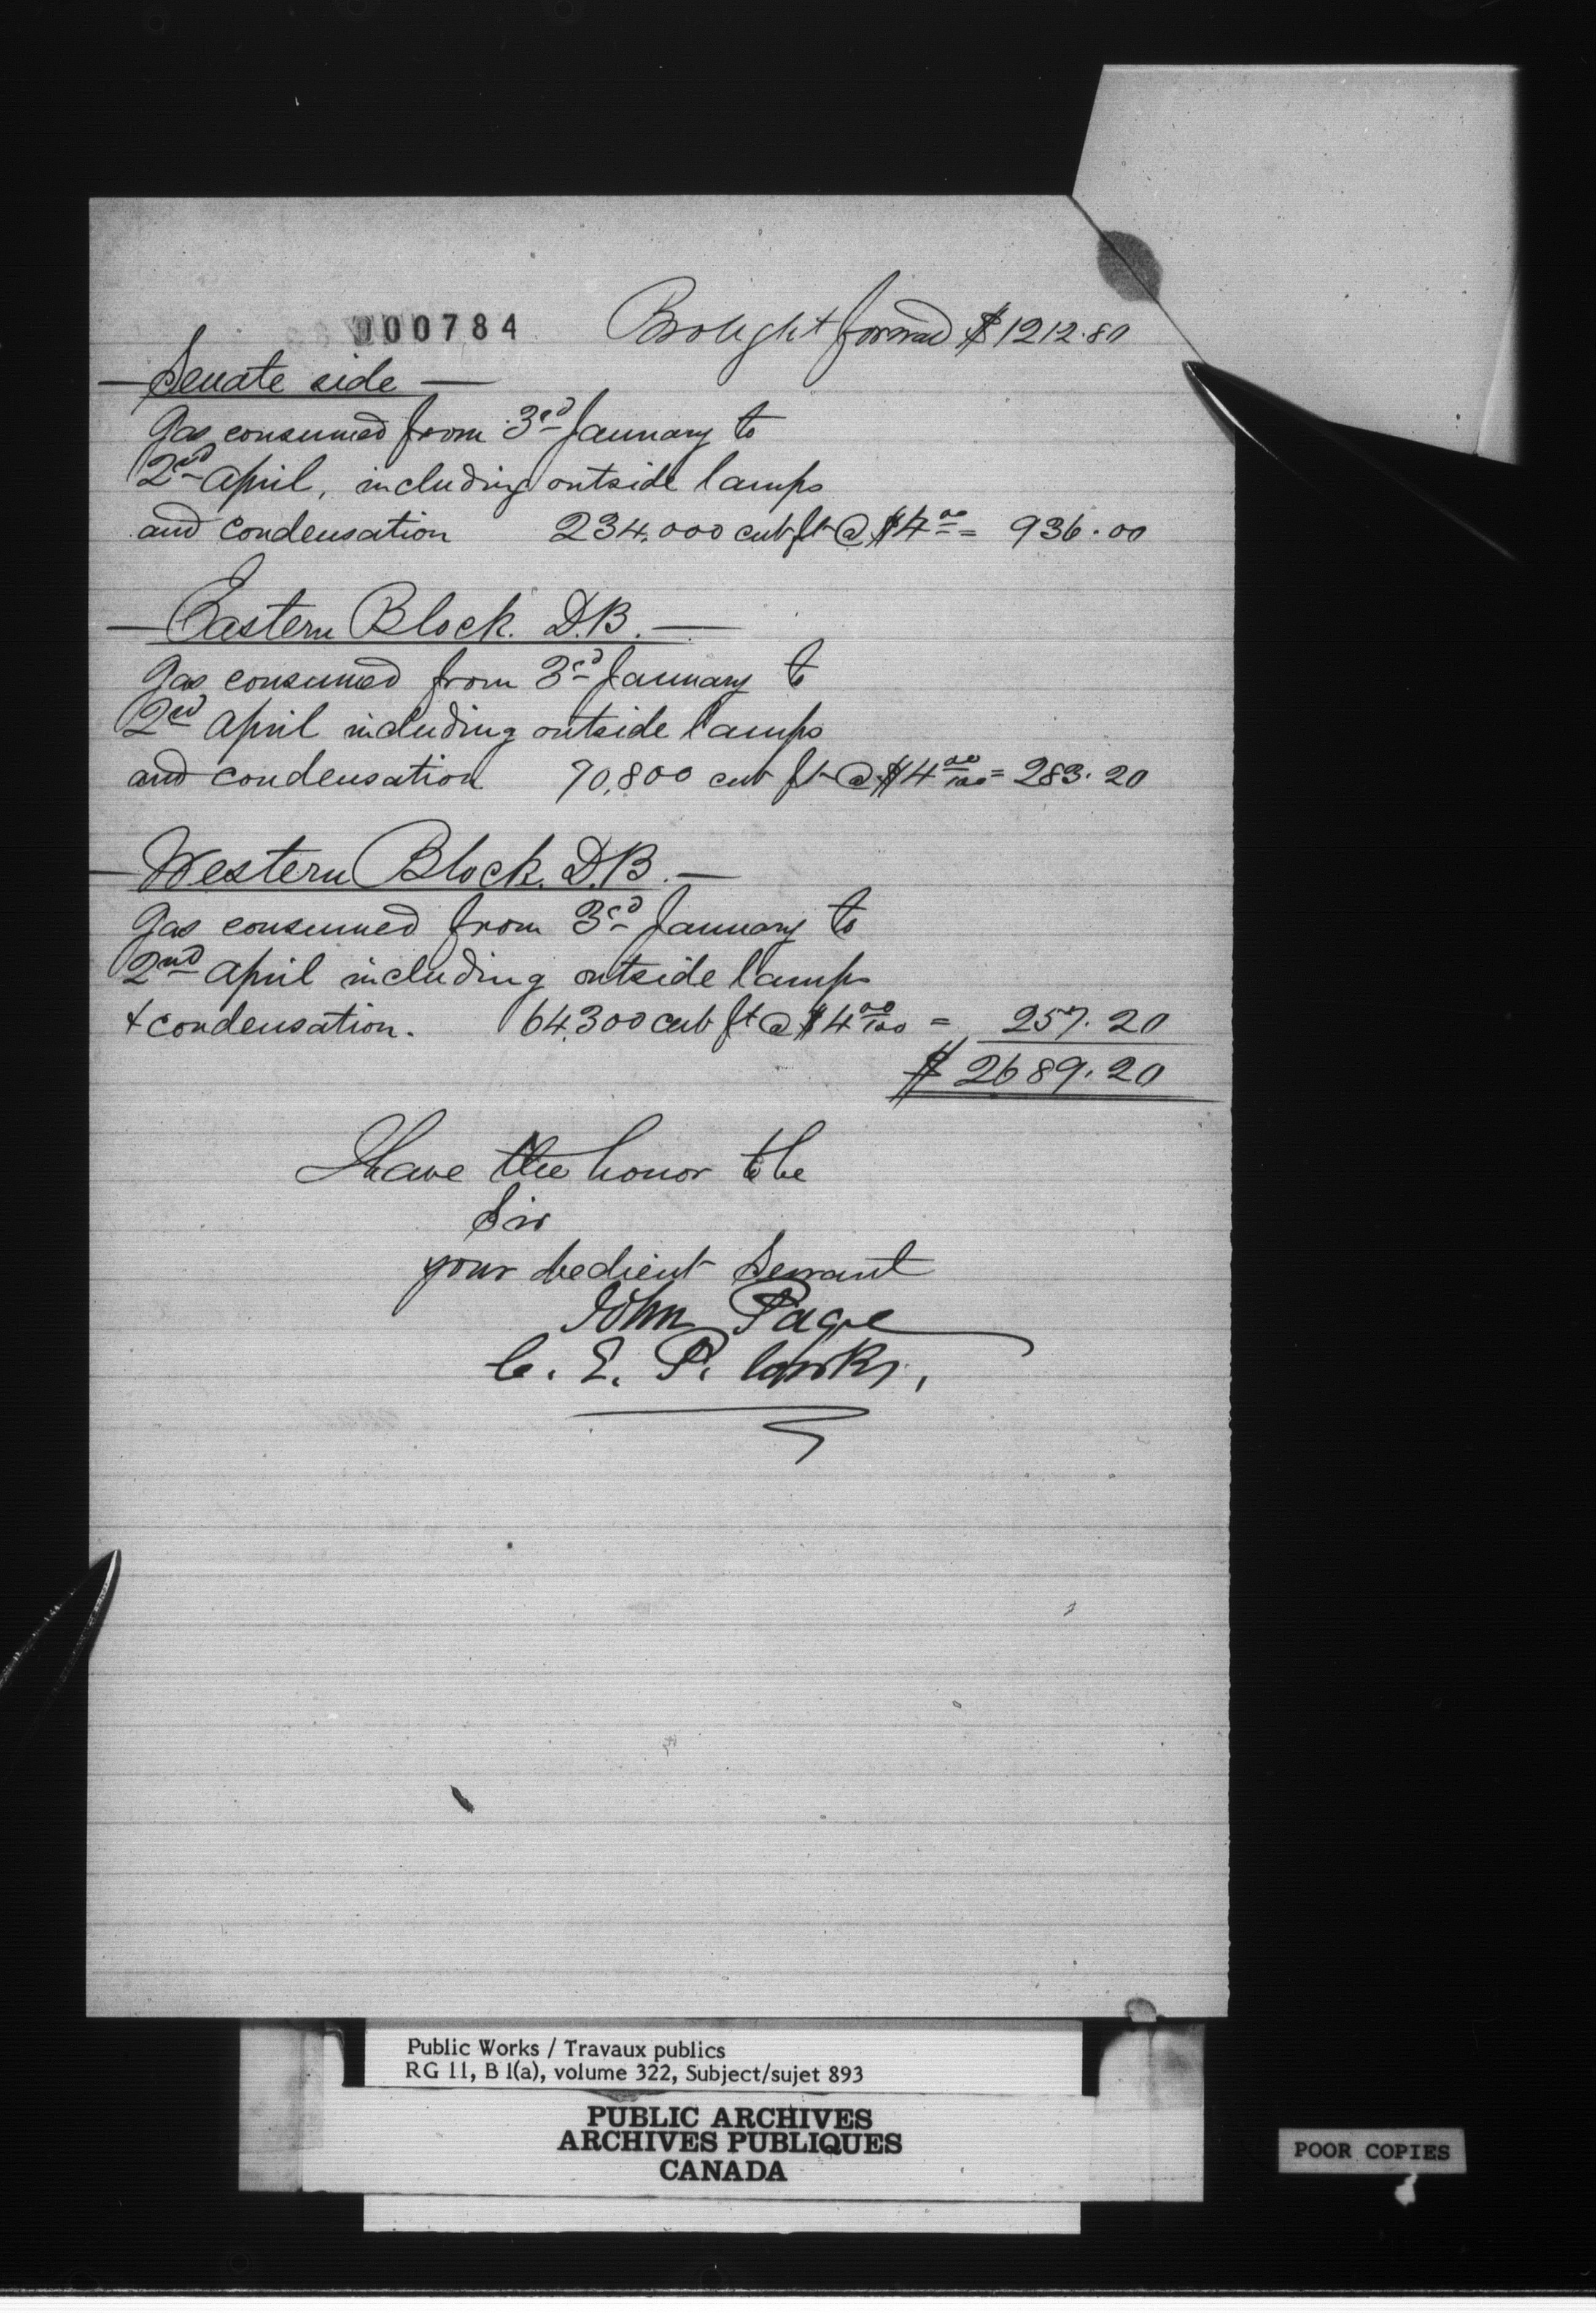 000784 Brought forward $1212.80
— Senate side —
Gas consumed from 3rd January to
2nd April, including outside lamps
and condensation 234,000 cub ft @ $4 00 = 936.00
— Eastern Block. D.B. —
Gas consumed from 3rd January to
2nd April including outside lamps
and condensation 70,800 cub ft @ $4 00/100 = 283.20
— Western Block. D.B. —
Gas consumed from 3rd January to
2nd April including outside lamps
& condensation. 64,300 cub ft @ $4 00/100 = 257.20
$2689.20
I have the honor to be
Sir
your obedient Servant
John Page
C. E. P. Works,
Public Works / Travaux publics
RG 11, B 1(a), volume 322, Subject/sujet 893
PUBLIC ARCHIVES
ARCHIVES PUBLIQUES
CANADA
POOR COPIES